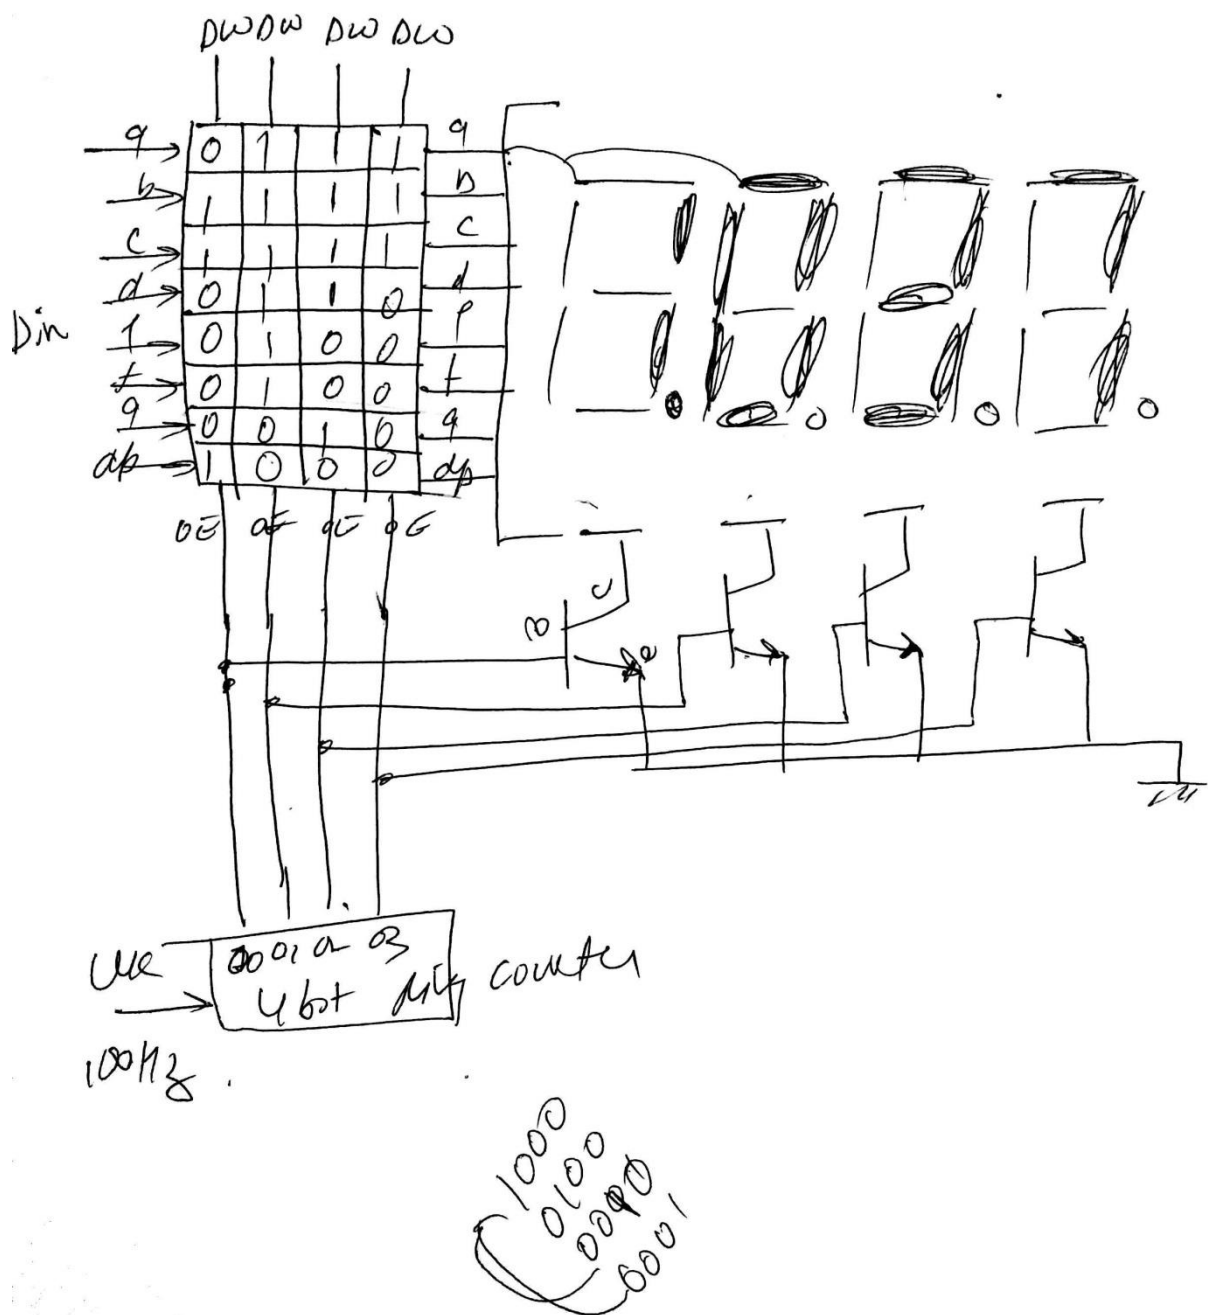 DW DW DW DW
a 0 1 1 1 a
b 1 1 1 1 b
c 1 1 1 1 c
d 0 1 1 0 d
Din
0 1 0 0
f 0 1 0 0 f
g 0 0 1 0 g
dp 1 0 0 0 dp
OE OE OE OE
B C e
00 01 02 03
4 bit ring counter
100Hz.
1000
0100
0010
0001